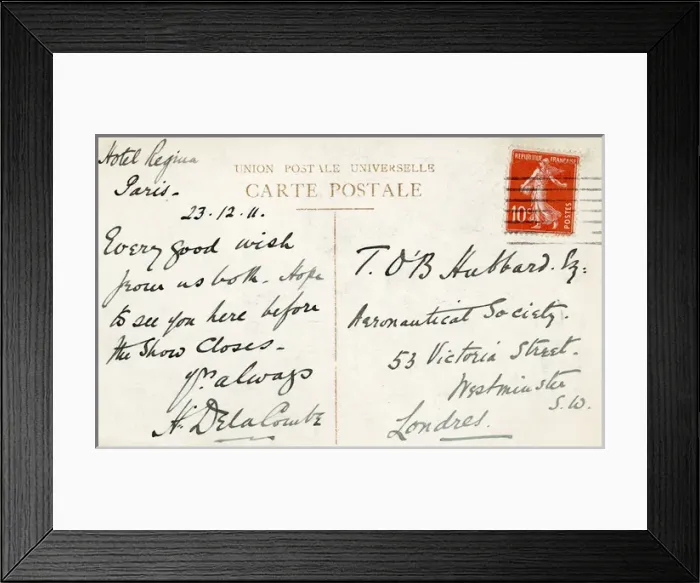 Hotel Regina
Paris -
23.12.11.
Every good wish
from us both. Hope
to see you here before
the Show Closes -
Yrs always
H. DelaCombe
UNION POSTALE UNIVERSELLE
CARTE POSTALE
REPUBLIQUE FRANÇAISE
10c
POSTES
T. O'B Hubbard. Esq:
Aeronautical Society.
53 Victoria Street.
Westminster
S.W.
Londres.